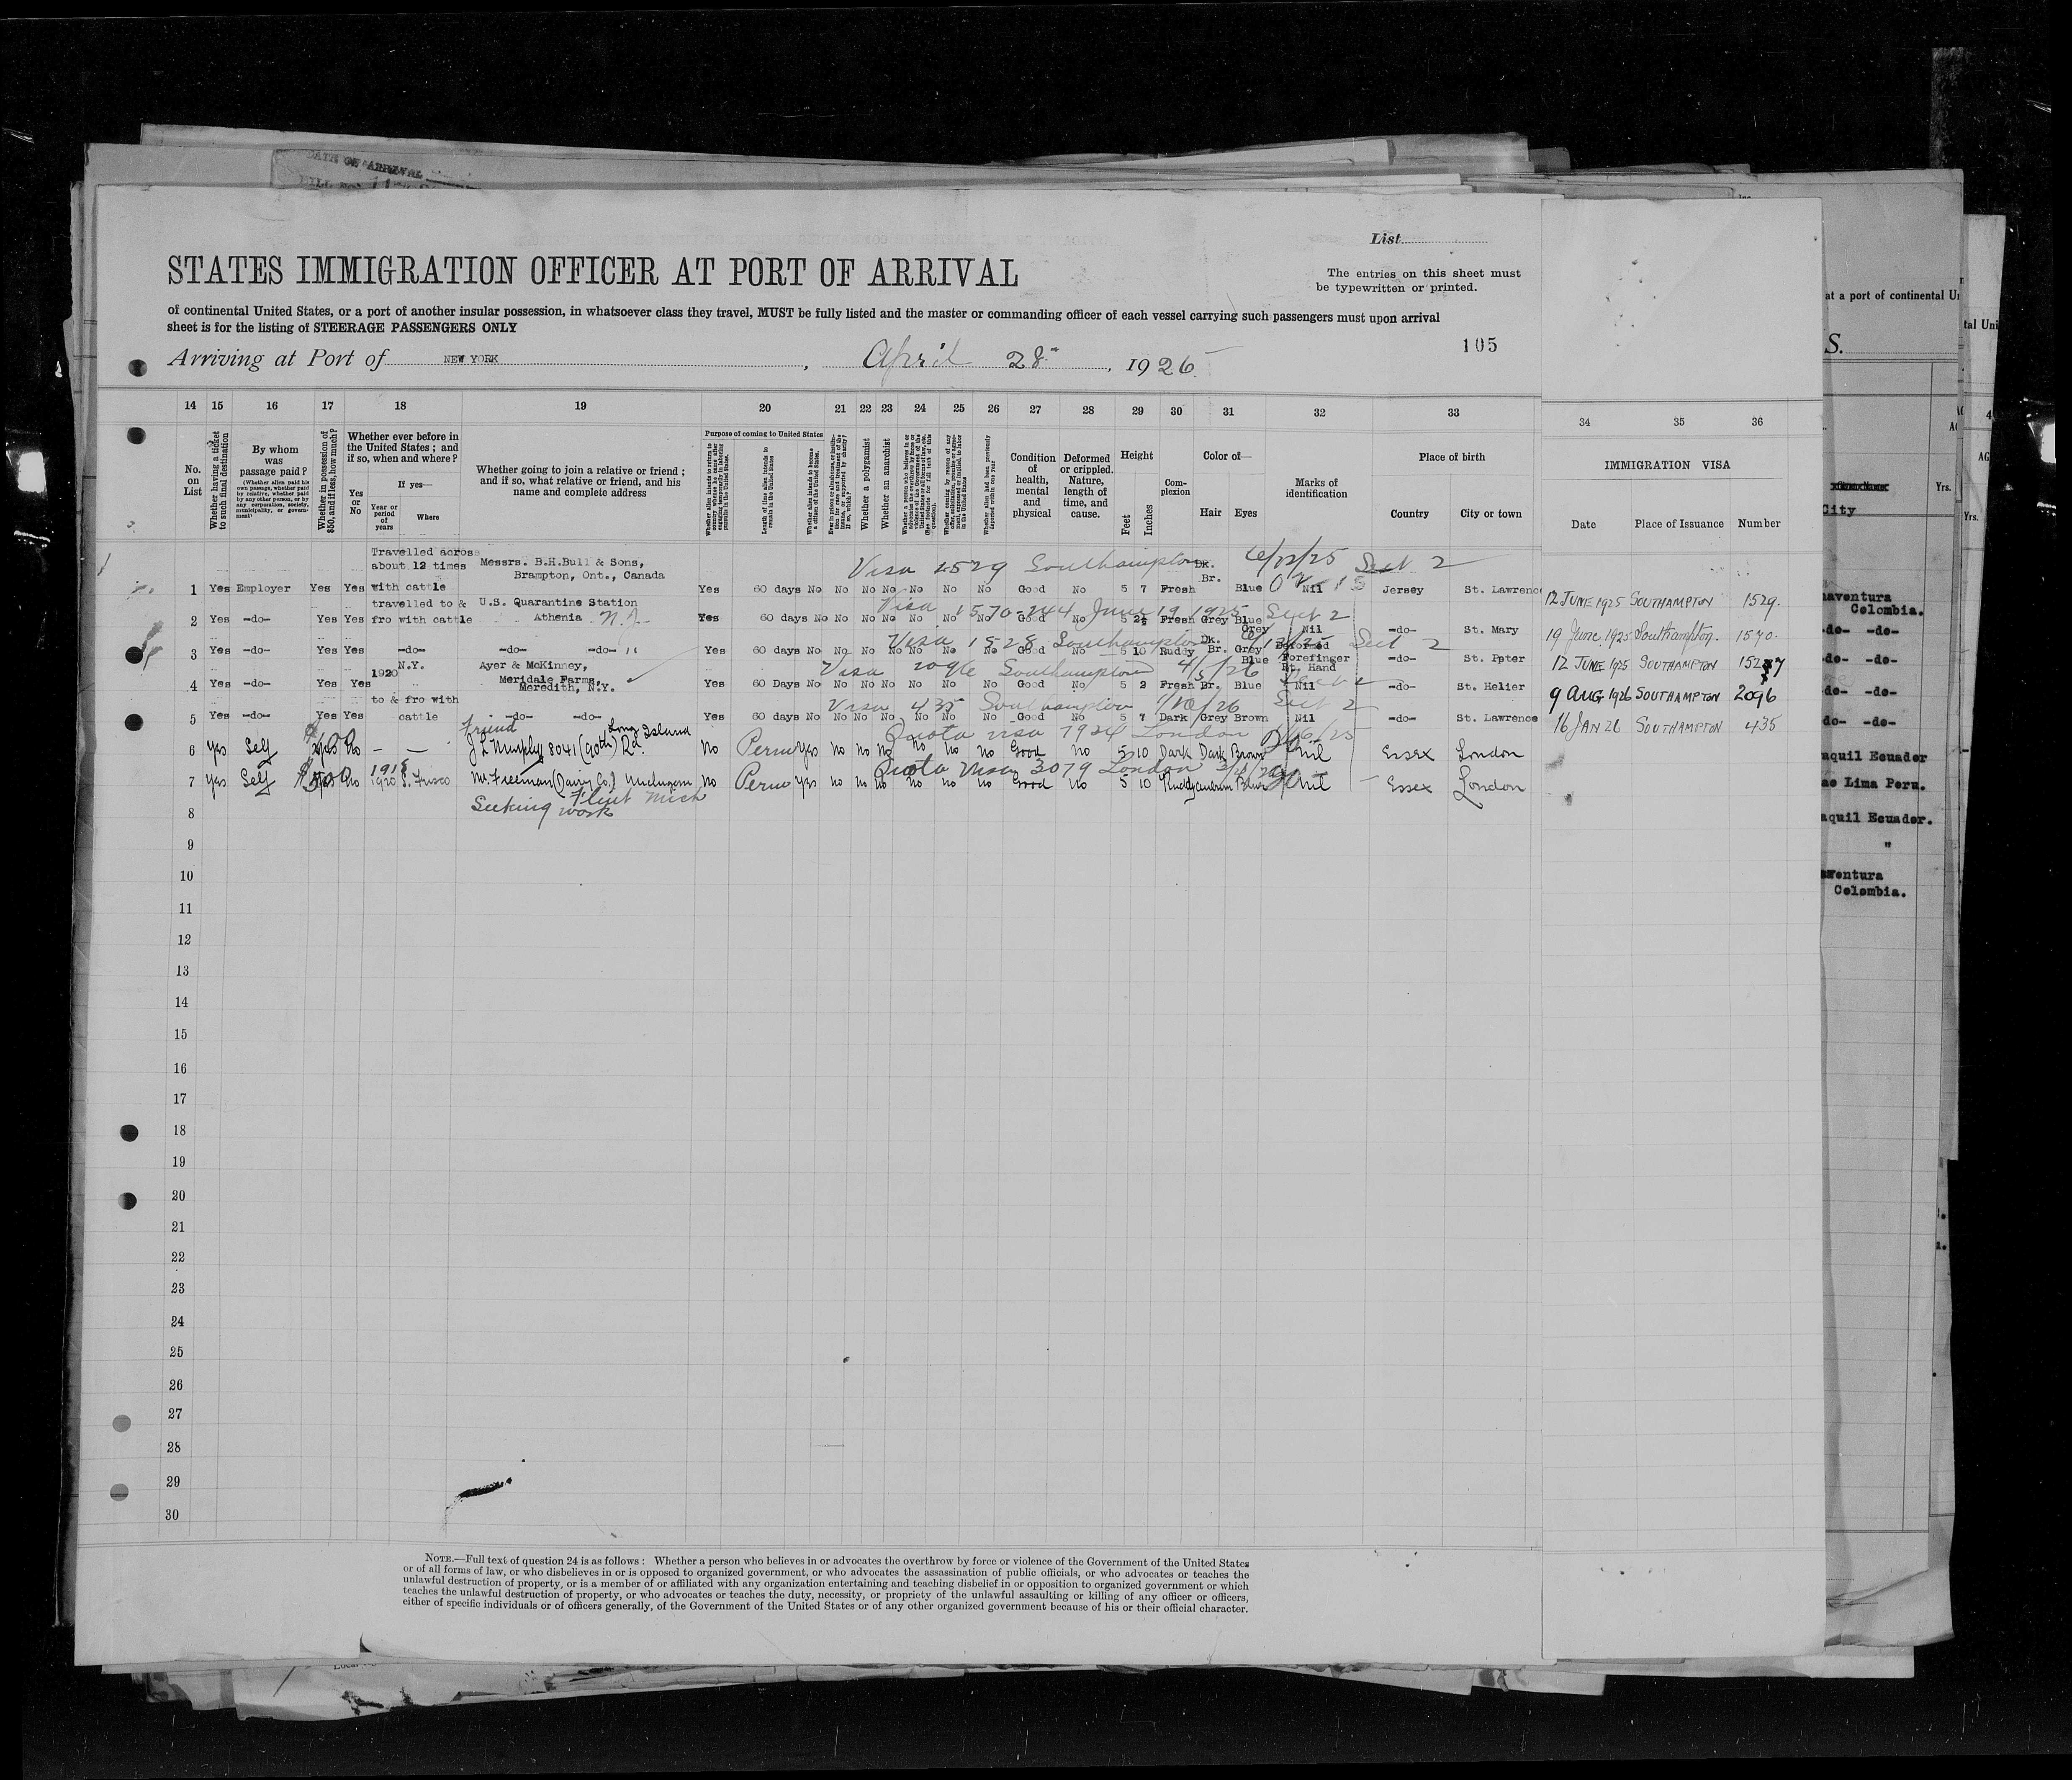 DATE OF ARRIVAL
List
STATES IMMIGRATION OFFICER AT PORT OF ARRIVAL
The entries on this sheet must
be typewritten or printed.
of continental United States, or a port of another insular possession, in whatsoever class they travel, MUST be fully listed and the master or commanding officer of each vessel carrying such passengers must upon arrival
sheet is for the listing of STEERAGE PASSENGERS ONLY
Arriving at Port of NEW YORK, April 28, 1926
105
14 15 16 17 18 19 20 21 22 23 24 25 26 27 28 29 30 31 32 33 34 35 36
No. on List
Whether having a ticket to such final destination
By whom was passage paid?
(Whether alien paid his own passage, whether paid by relative, whether paid by any other person, or by any corporation, society, municipality, or government)
Whether in possession of $50, and if less, how much?
Whether ever before in the United States; and if so, when and where?
Yes or No
If yes—
Year or period of years
Where
Whether going to join a relative or friend; and if so, what relative or friend, and his name and complete address
Purpose of coming to United States
Length of time alien intends to remain in the United States
Whether alien intends to become a citizen of the United States.
Whether a polygamist
Whether an anarchist
Condition of health, mental and physical
Deformed or crippled. Nature, length of time, and cause.
Height
Feet
Inches
Complexion
Color of—
Hair
Eyes
Marks of identification
Place of birth
Country
City or town
IMMIGRATION VISA
Date
Place of Issuance
Number
Travelled across
about 12 times Messrs. B.H.Bull & Sons, Visa 1529 Southampton Sect 2
Brampton, Ont., Canada Dk. Br.
1 Yes Employer Yes Yes with cattle Yes 60 days No No No No No No No Good No 5 7 Fresh Blue Nil Jersey St. Lawrence 12 JUNE 1925 SOUTHAMPTON 1529.
travelled to & U.S. Quarantine Station Visa 1570-244 June 19 1925 Sect 2
2 Yes -do- Yes Yes fro with cattle Athenia N.J. Yes 60 days No No No No No No No Good No 5 2½ Fresh Grey Blue Grey Nil -do- St. Mary 19 June 1925 Southampton. 1570.
Visa 1528 Southampton Sect 2
3 Yes -do- Yes Yes -do- -do- -do- Yes 60 days No No No No No No No Good No 5 10 Ruddy Dk. Br. Grey Blue Deformed Forefinger Rt. Hand -do- St. Peter 12 JUNE 1925 SOUTHAMPTON
1920 N.Y. Ayer & McKinney, Visa 2096 Southampton
Meridale Farms,
4 Yes -do- Yes Yes Meredith, N.Y. Yes 60 Days No No No No No No No Good No 5 2 Fresh Br. Blue Nil -do- St. Helier 9 AUG 1926 SOUTHAMPTON 2096
to & fro with Visa 435 Southampton Sect 2
5 Yes -do- Yes Yes cattle -do- -do- Yes 60 days No No No No No No No Good No 5 7 Dark Grey Brown Nil -do- St. Lawrence 16 JAN 26 SOUTHAMPTON 435
Friend Long Island Quota visa 7924 London
6 Yes Self No — — J L Murphy 8041 (90th) Rd. No Perm Yes no no No no no no Good no 5 10 Dark Dark Brown nil Essex London
Quota Visa 3079 London
7 Yes Self 1920 S. Frisco Mr. Freeman (Dairy Co.) No Perm Yes no no No no no no Good No 5 10 Blue nil Essex London
Flint Mich
8 Seeking work
9
10
11
12
13
14
15
16
17
18
19
20
21
22
23
24
25
26
27
28
29
30
NOTE.—Full text of question 24 is as follows: Whether a person who believes in or advocates the overthrow by force or violence of the Government of the United States
or of all forms of law, or who disbelieves in or is opposed to organized government, or who advocates the assassination of public officials, or who advocates or teaches the
unlawful destruction of property, or is a member of or affiliated with any organization entertaining and teaching disbelief in or opposition to organized government or which
teaches the unlawful destruction of property, or who advocates or teaches the duty, necessity, or propriety of the unlawful assaulting or killing of any officer or officers,
either of specific individuals or of officers generally, of the Government of the United States or of any other organized government because of his or their official character.
at a port of continental
S.
City
Yrs.
Colombia.
-do- -do-
-do- -do-
-do- -do-
Ecuador
Lima Peru.
Ecuador.
"
Colombia.